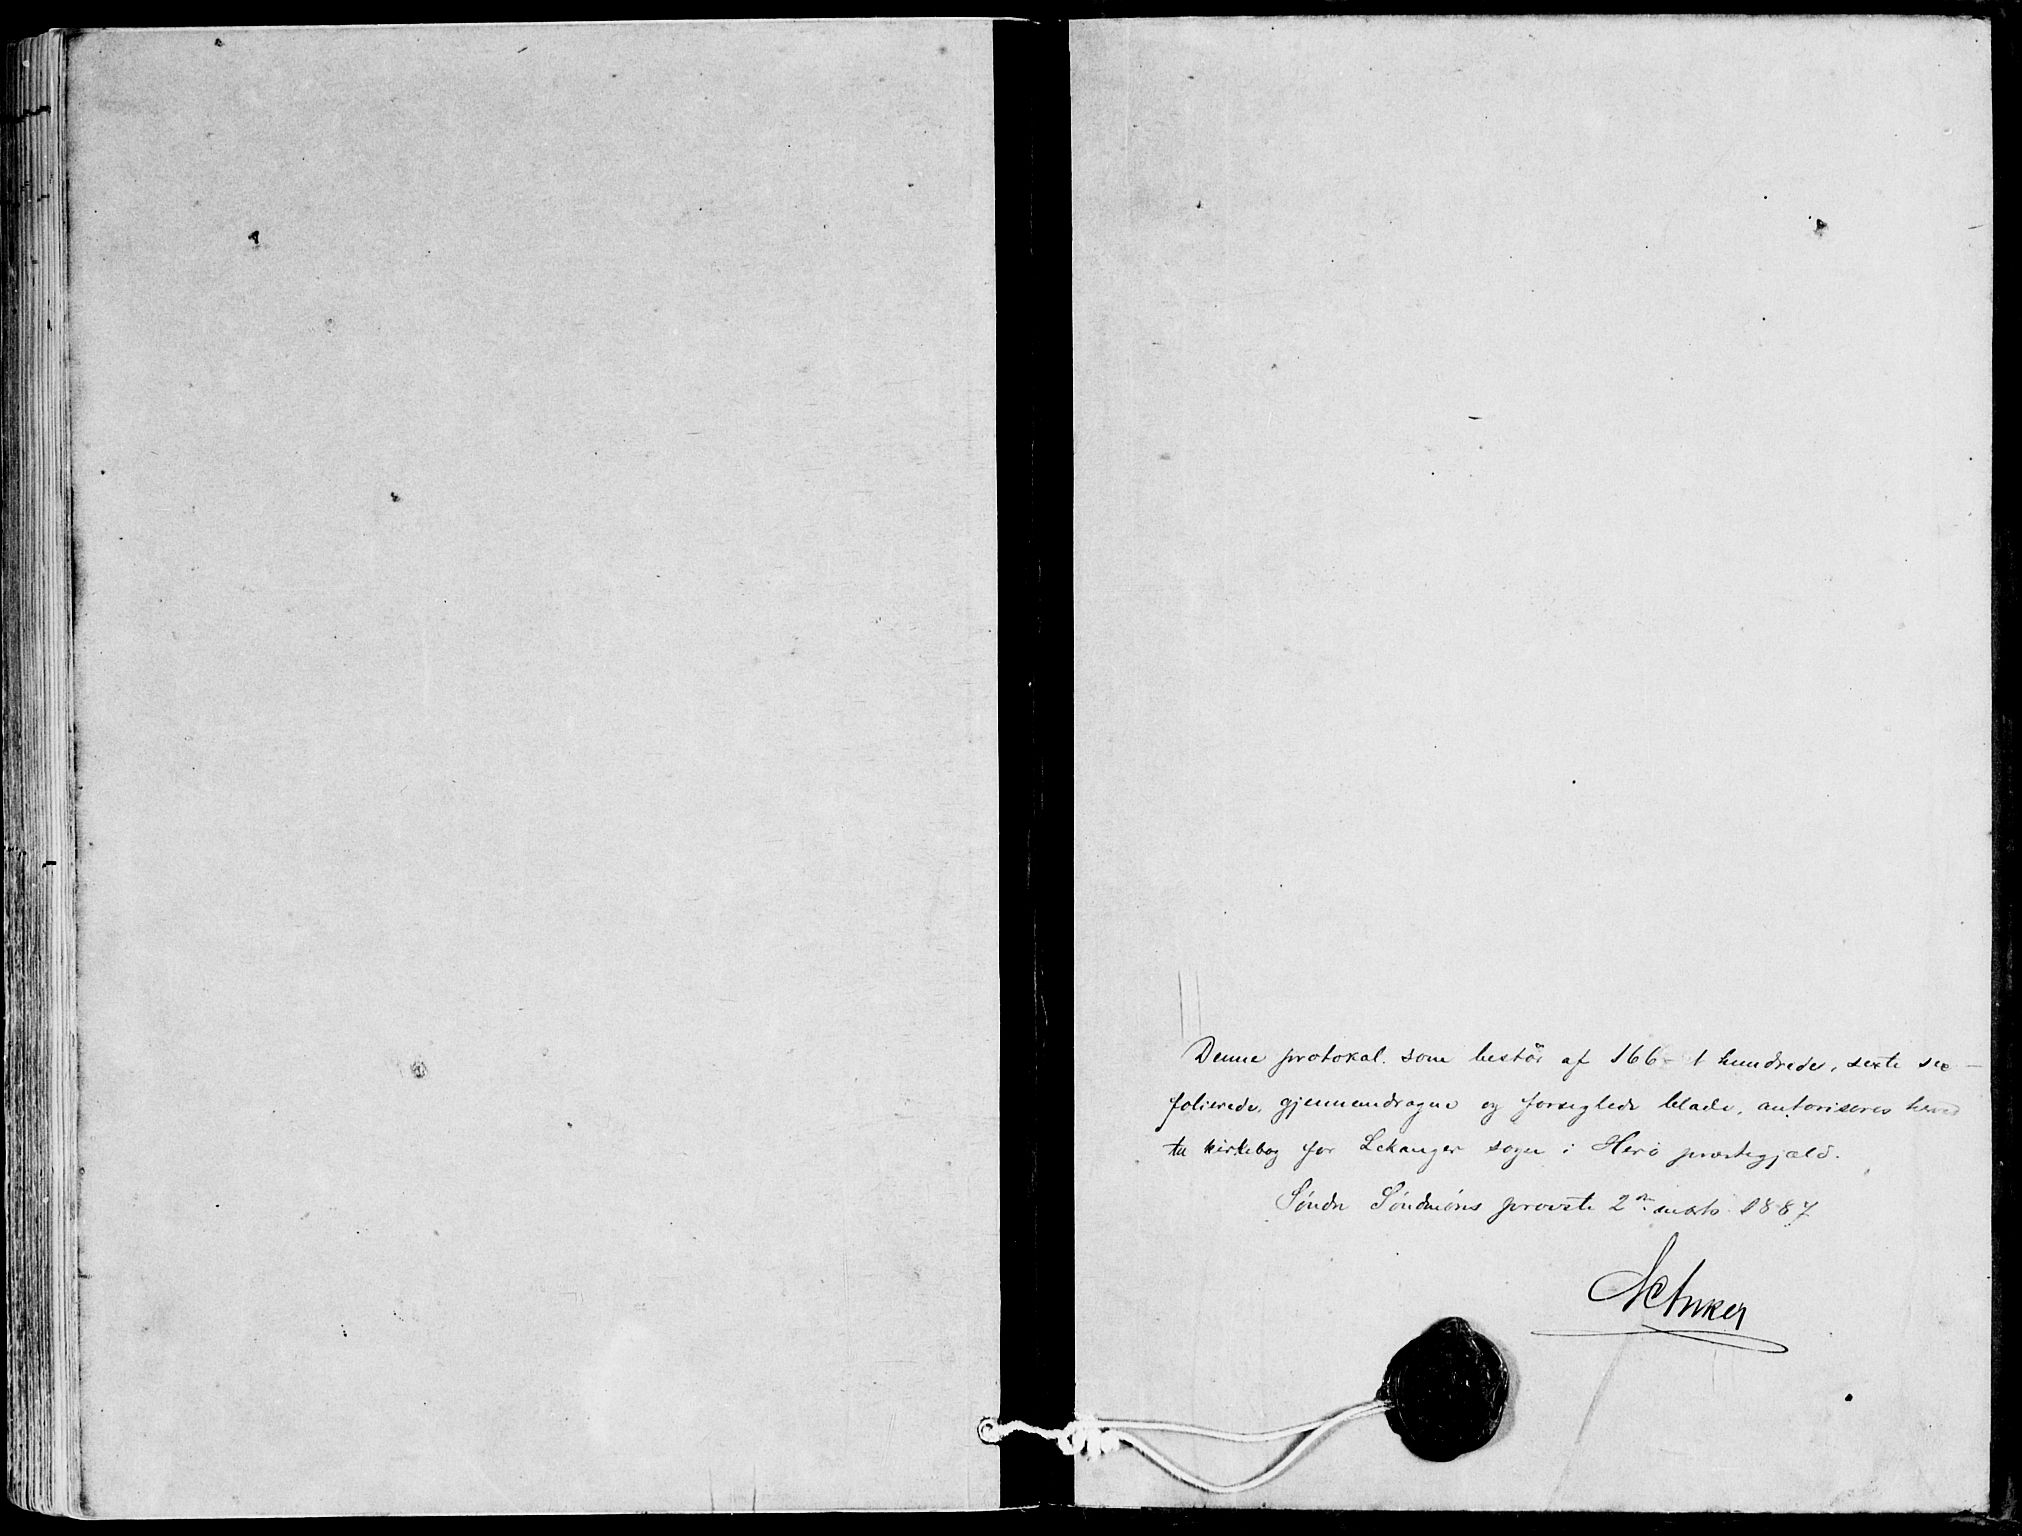 Denne protokol. som består af 166 - 1 hundrede, sexti sex -
folierede, gjennemdragne og forseglede blade, autoriseres herved
til kirkebog for Lekanger sogn i Herø præstegjæld.
Søndre Søndmørs provsti 2den marts 1887
Anker